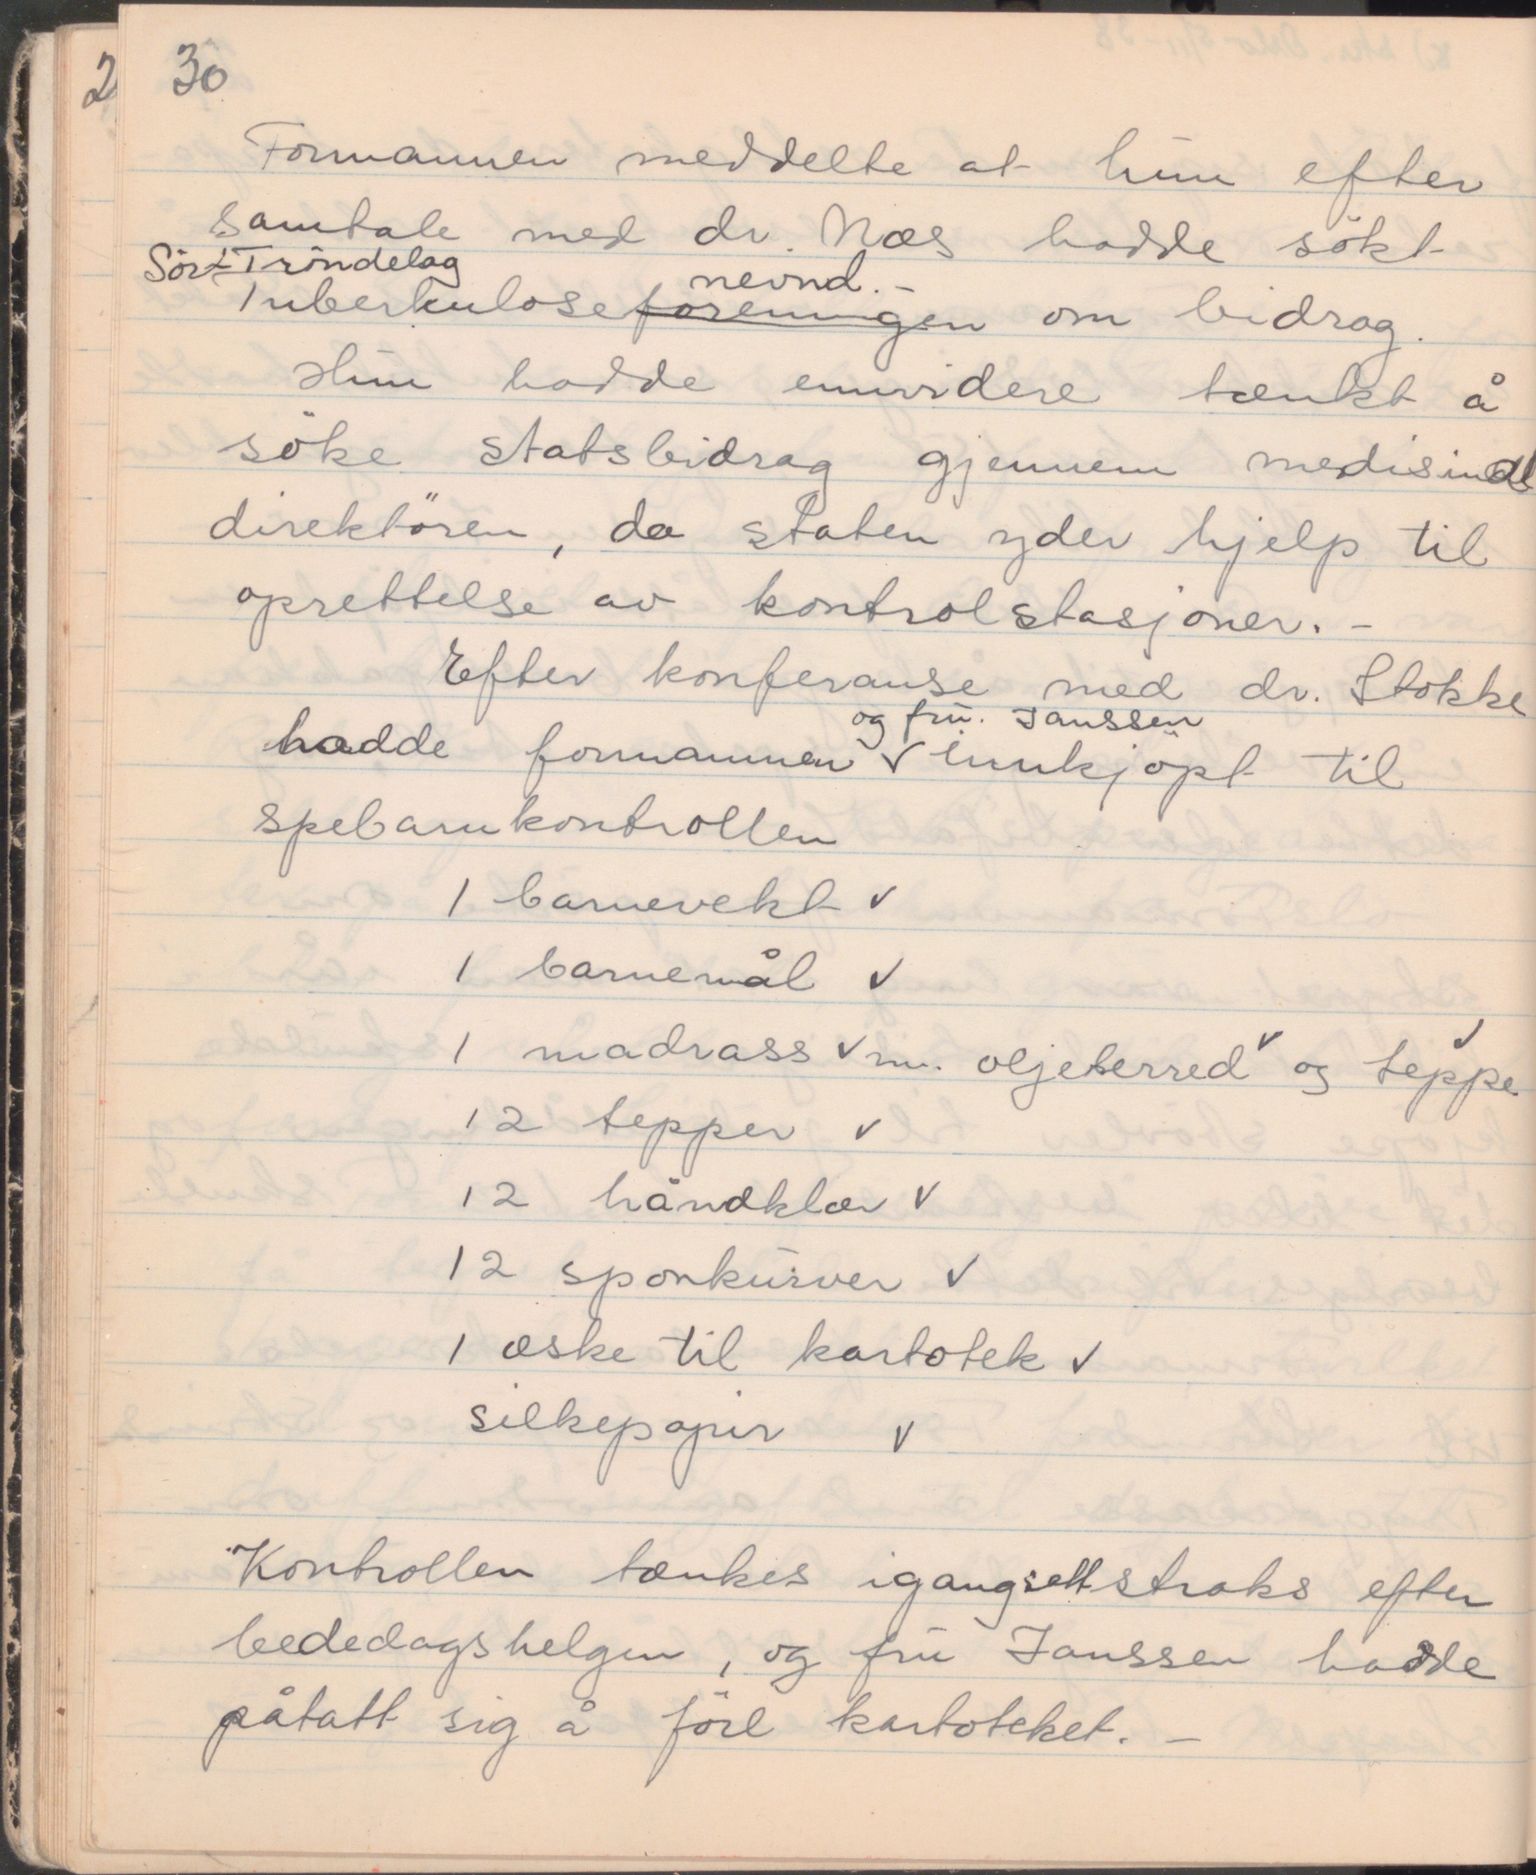 30
Formannen meddelte at hun efter
samtale med dr. Næs hadde søkt
Sör-Tröndelag nevnd. -
Tuberkuloseforeningen om bidrag.
Hun hadde ennvidere tænkt å
söke statsbidrag gjennem medisinal
direktören, da staten yder hjelp til
oprettelse av kontrolstasjoner. -
Efter konferanse med dr. Stokke
og fru. Janssen
hadde formannen ✓ innkjöpt til
spebarnkontrollen
1 barnevekt ✓
1 barnemål ✓
1 madrass ✓ m. oljeterred ✓ og teppe ✓
12 tepper ✓
12 håndklær ✓
12 sponkurver ✓
1 æske til kartotek ✓
silkepapir ✓
Kontrollen tænkes igangsett straks efter
bededagshelgen, og fru Janssen hadde
påtatt sig å före kartoteket. -
2